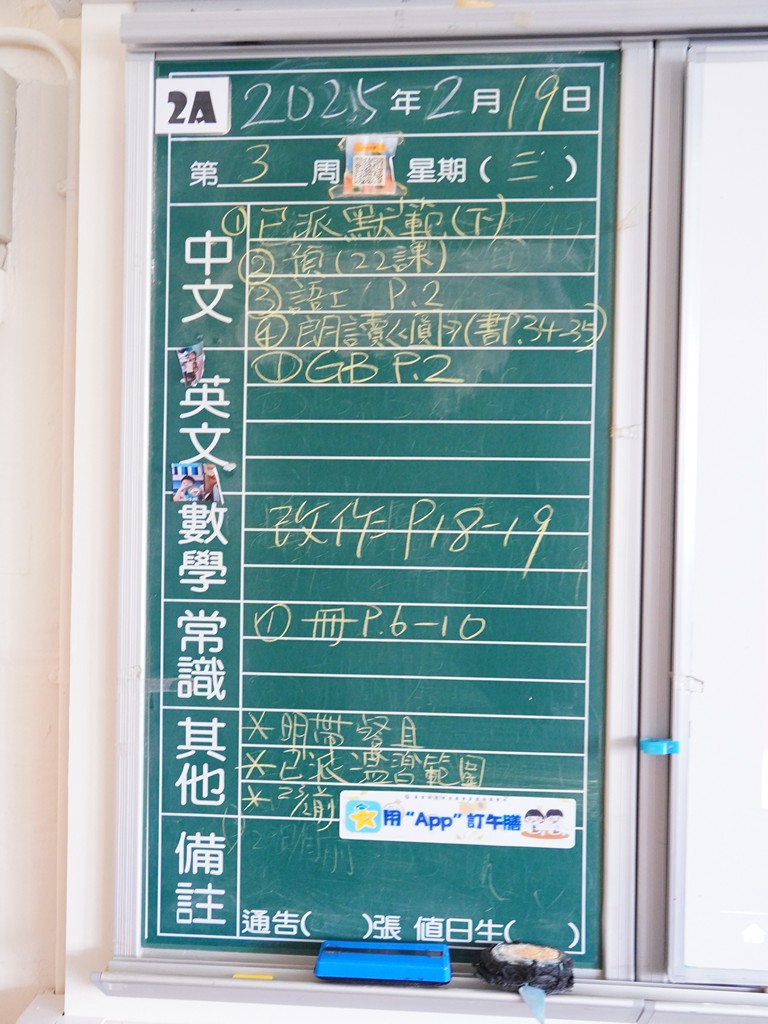 2A 2025年2月19日
第3周 星期(三)
中文
①已派默範(下)
②預(22課)
③語工 P.2
④朗讀(書P.34-35)
英文
①GB P.2
數學
改作P18-19
常識
①冊P.6-10
其他
*明帶餐具
*已派溫習範圍
*23/2前
用“App”訂午膳
備註
通告( )張 值日生( )